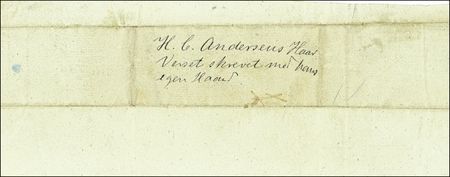 H. C. Andersens Haar
Verset skrevet med hans
egen Haand.